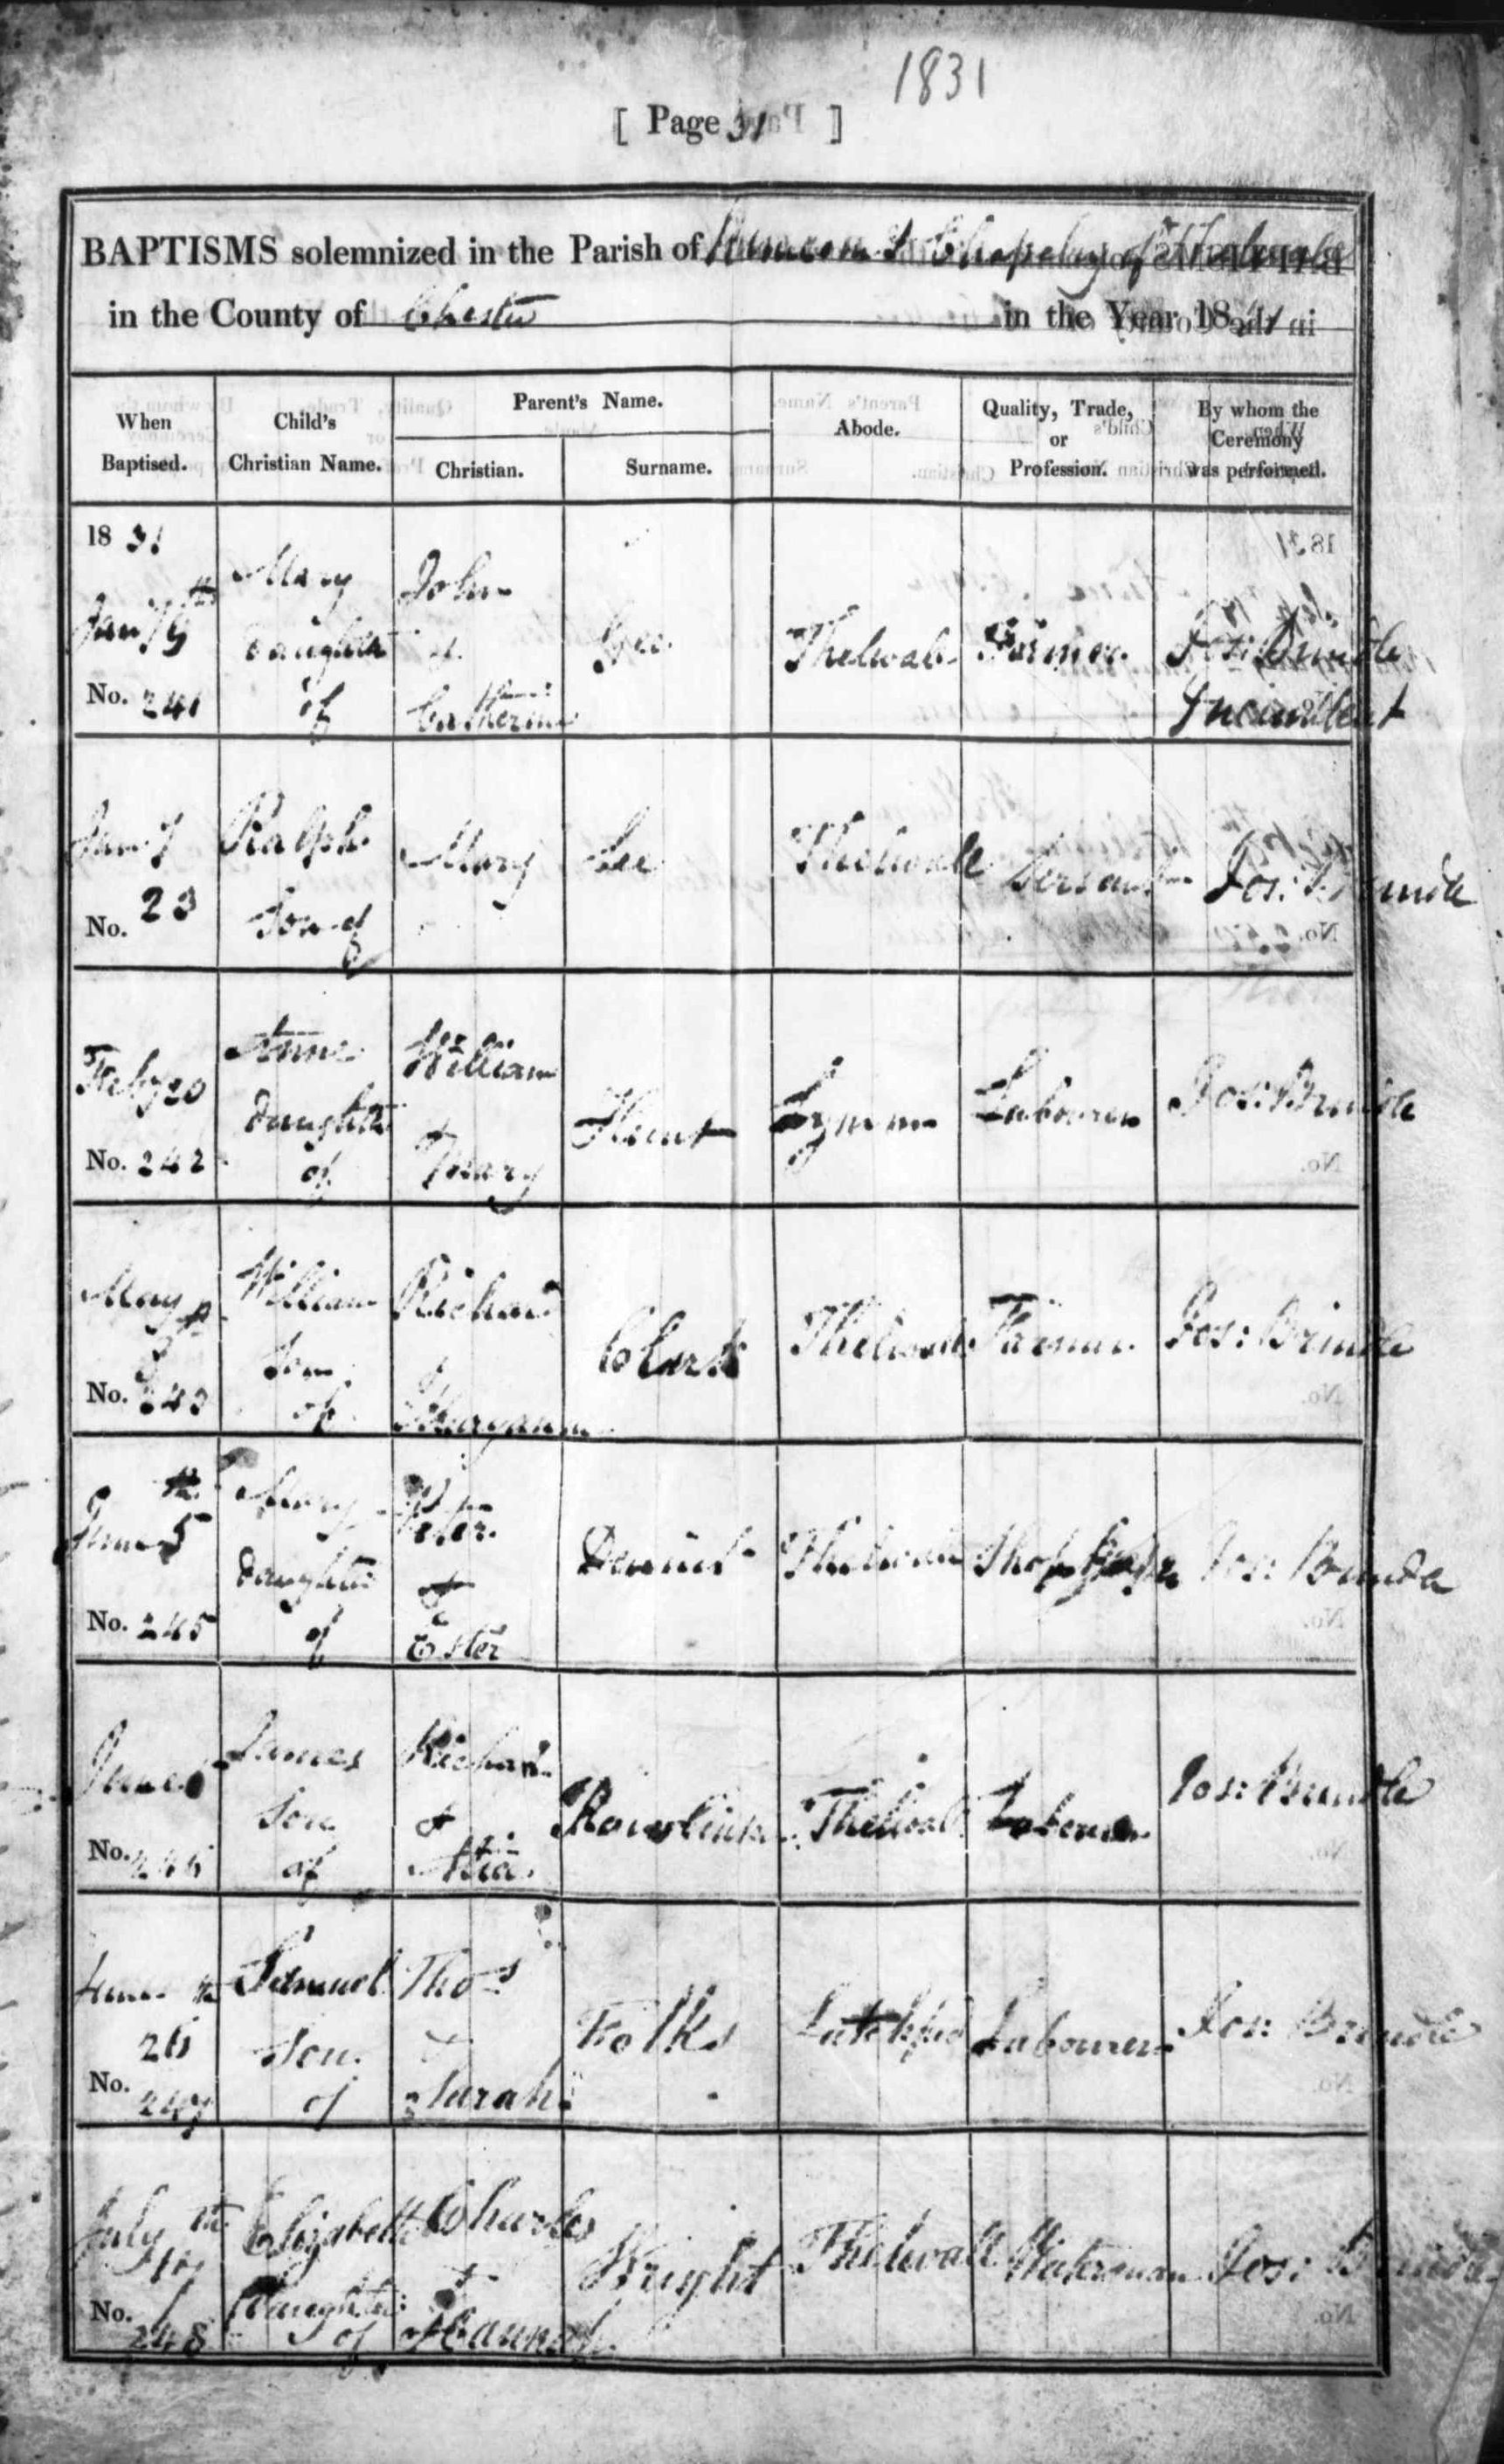 1831
[ Page 31 ]
BAPTISMS solemnized in the Parish of Runcorn & Chapelry of Thelwall
in the County of Chester in the Year 1831
When Baptised.
Child's Christian Name.
Parent's Name.
Christian.
Surname.
Abode.
Quality, Trade, or Profession.
By whom the Ceremony was performed.
1831
Jany 9th
No. 241
Mary
Daughter
of
John
&
Catherine
Thelwall
Farmer
Jos: Brindle
Incumbent
Jany
23
No.
Ralph
Son of
Mary
Lee
Thelwall
Servant
Jos: Brindle
Feby 20
No. 242
Anne
Daughter
of
William
Mary
Hunt
Lymm
Labourer
Jos: Brindle
May
No. 243
William
Son
of
Richard
&
Clark
Thelwall
Farmer
Jos: Brindle
June 5th
No. 245
Mary
Daughter
of
Peter
&
Ester
Thelwall
Shop
Jos: Brindle
June
No. 246
James
Son
of
Richard
&
Thelwall
Labourer
Jos: Brindle
June
26
No. 247
Samuel
Son
of
Thos
&
Sarah
Folks
Latchford
Labourer
Jos: Brindle
July
No. 248
Elizabeth
Daughter
of
Charles
&
Hannah
Wright
Thelwall
Waterman
Jos: Brindle